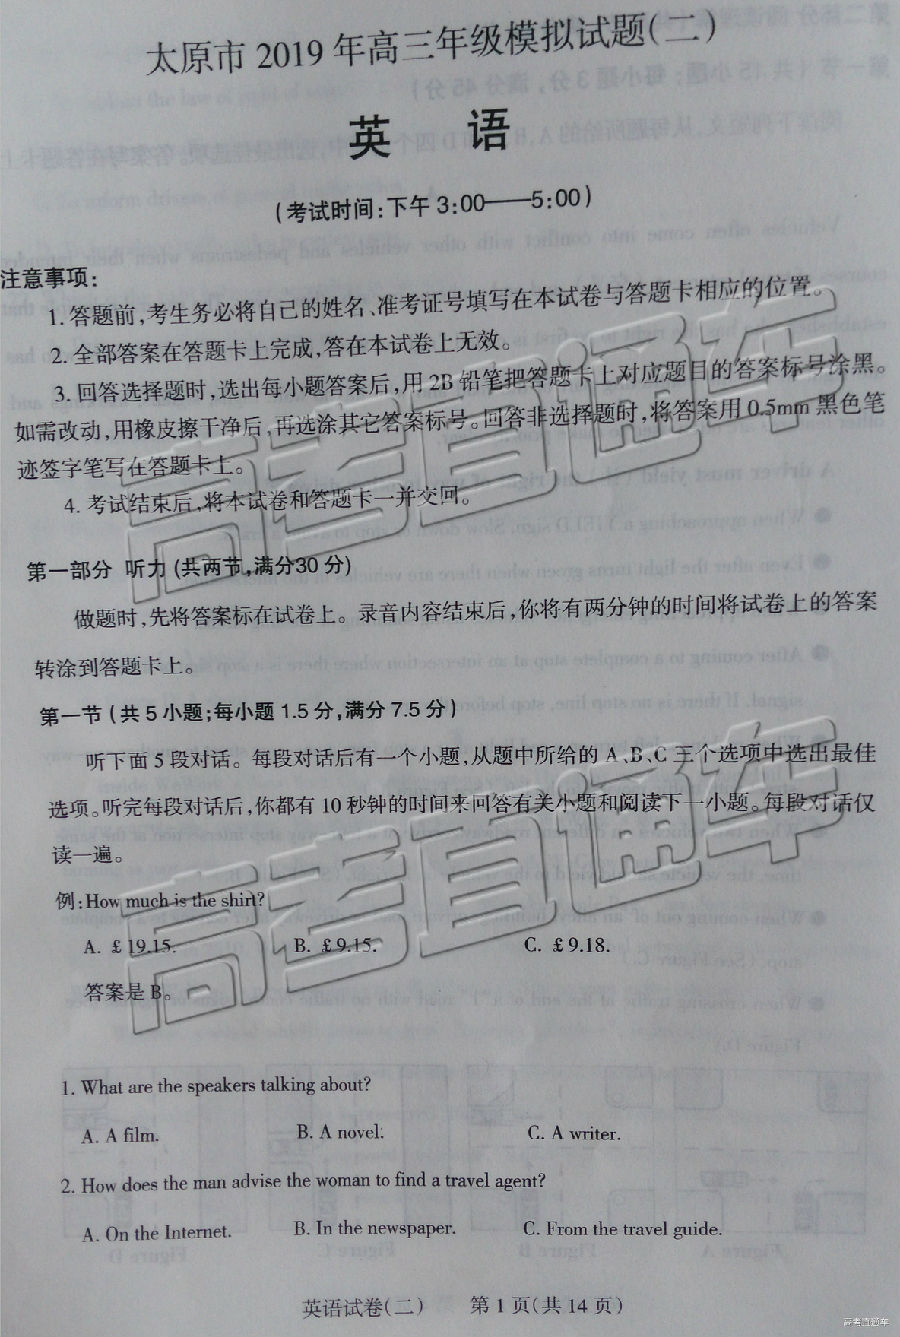 太原市 2019 年高三年级模拟试题(二)
英 语
(考试时间:下午 3:00——5:00)
注意事项:
1. 答题前,考生务必将自己的姓名、准考证号填写在本试卷与答题卡相应的位置。
2. 全部答案在答题卡上完成,答在本试卷上无效。
3. 回答选择题时,选出每小题答案后,用 2B 铅笔把答题卡上对应题目的答案标号涂黑。
如需改动,用橡皮擦干净后,再选涂其它答案标号。回答非选择题时,将答案用 0.5mm 黑色笔
迹签字笔写在答题卡上。
4. 考试结束后,将本试卷和答题卡一并交回。
第一部分 听力 (共两节,满分30 分)
做题时,先将答案标在试卷上。录音内容结束后,你将有两分钟的时间将试卷上的答案
转涂到答题卡上。
第一节 (共 5 小题;每小题 1.5 分,满分 7.5 分)
听下面 5 段对话。每段对话后有一个小题,从题中所给的 A、B、C 三个选项中选出最佳
选项。听完每段对话后,你都有 10 秒钟的时间来回答有关小题和阅读下一小题。每段对话仅
读一遍。
例:How much is the shirt?
A. £19.15. B. £9.15. C. £9.18.
答案是 B。
1. What are the speakers talking about?
A. A film. B. A novel. C. A writer.
2. How does the man advise the woman to find a travel agent?
A. On the Internet. B. In the newspaper. C. From the travel guide.
英语试卷(二) 第 1 页(共 14 页)
高考直通车
高考直通车
高考直通车